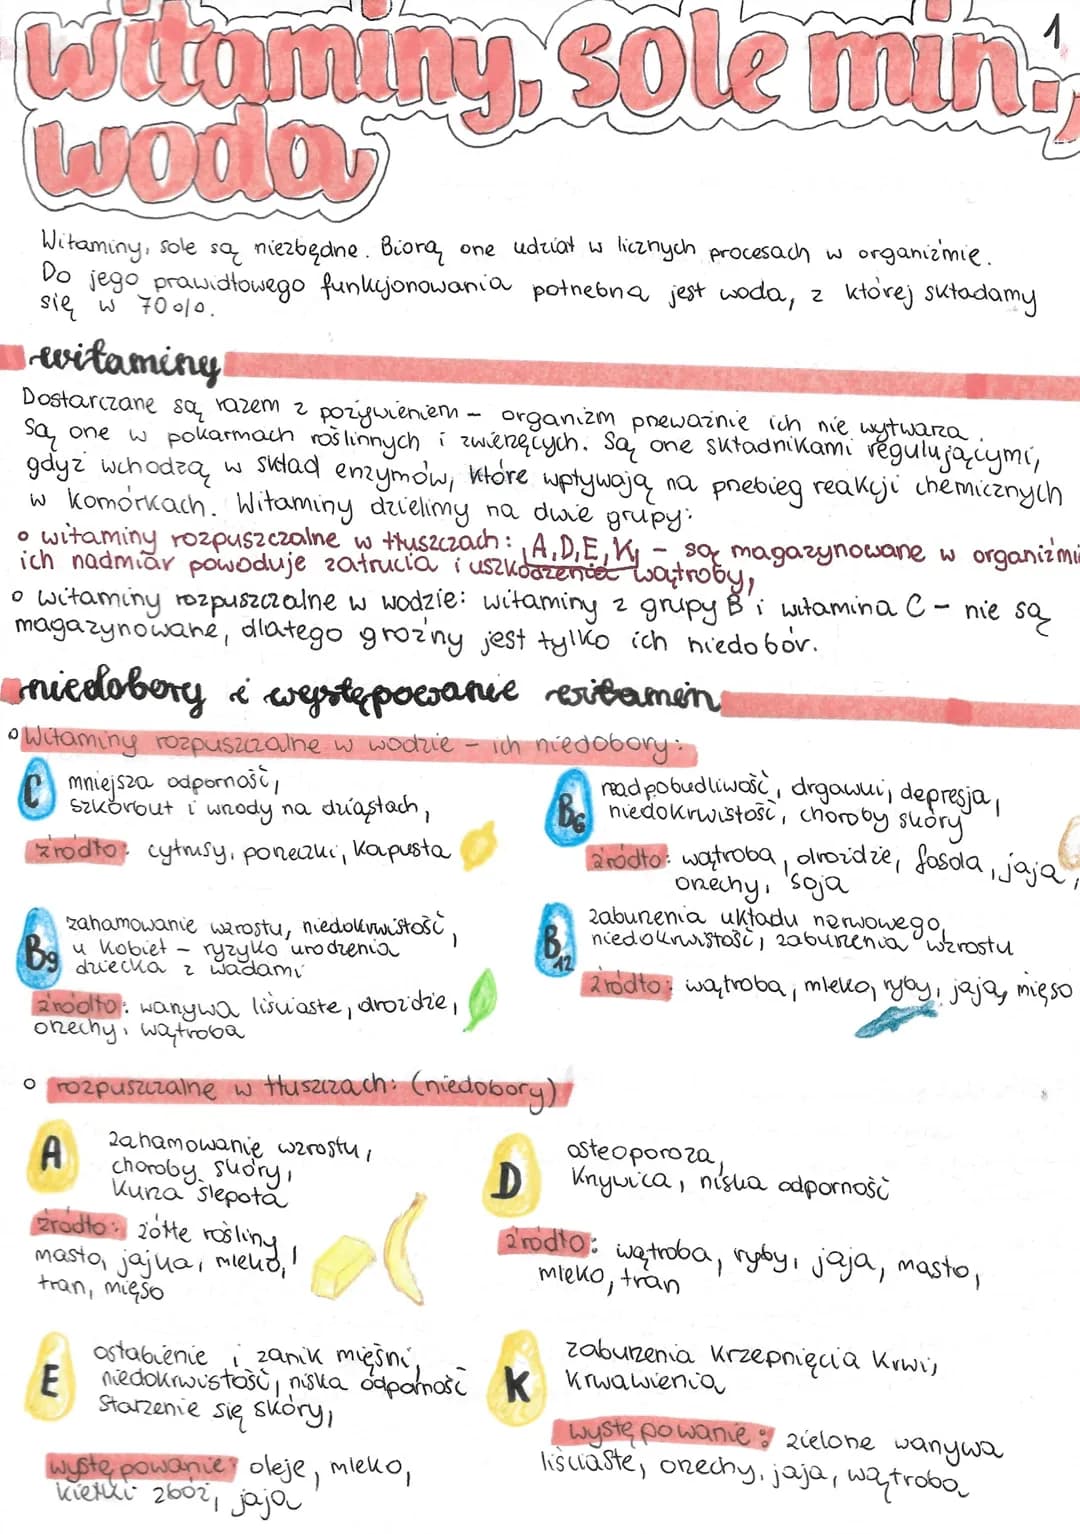 1
witaminy, sole min.,
woda
Witaminy, sole są niezbędne. Biorą one udział w licznych procesach w organiźmie.
Do jego prawidłowego funkcjonowania potrzebna jest woda, z której składamy
się w 70%.
witaminy
Dostarczane są razem z pożywieniem - organizm przeważnie ich nie wytwarza.
Są one w pokarmach roślinnych i zwierzęcych. Są one składnikami regulującymi,
gdyż wchodzą w skład enzymów, które wpływają na przebieg reakcji chemicznych
w komórkach. Witaminy dzielimy na dwie grupy:
o witaminy rozpuszczalne w tłuszczach: A,D,E,K, - są magazynowane w organizmi
ich nadmiar powoduje zatrucia i uszkodzenia wątroby,
o witaminy rozpuszczalne w wodzie: witaminy z grupy B i witamina C - nie są
magazynowane, dlatego groźny jest tylko ich niedobór.
niedobory i występowanie witamin
o Witaminy rozpuszczalne w wodzie - ich niedobory:
C mniejsza odporność,
szkorbut i wrzody na dziąsłach,
źródło: cytrusy, porzeczki, kapusta
B6 nadpobudliwość, drgawki, depresja,
niedokrwistość, choroby skóry
źródło: wątroba, drożdże, fasola, jaja,
orzechy, soja
B9 zahamowanie wzrostu, niedokrwistość,
u kobiet - ryzyko urodzenia
dziecka z wadami
źródło: warzywa liściaste, drożdże,
orzechy, wątroba
B12 zaburzenia układu nerwowego,
niedokrwistość, zaburzenia wzrostu
źródło: wątroba, mleko, ryby, jaja, mięso
o rozpuszczalne w tłuszczach: (niedobory)
A zahamowanie wzrostu,
choroby skóry,
kurza ślepota
źródło: żółte rośliny
masło, jajka, mleko,
tran, mięso
D osteoporoza,
Krzywica, niska odporność
źródło: wątroba, ryby, jaja, masło,
mleko, tran
E osłabienie i zanik mięśni,
niedokrwistość, niska odporność
starzenie się skóry,
występowanie: oleje, mleko,
kiełki zbóż, jaja
K zaburzenia krzepnięcia krwi,
krwawienia
występowanie: zielone warzywa
liściaste, orzechy, jaja, wątroba